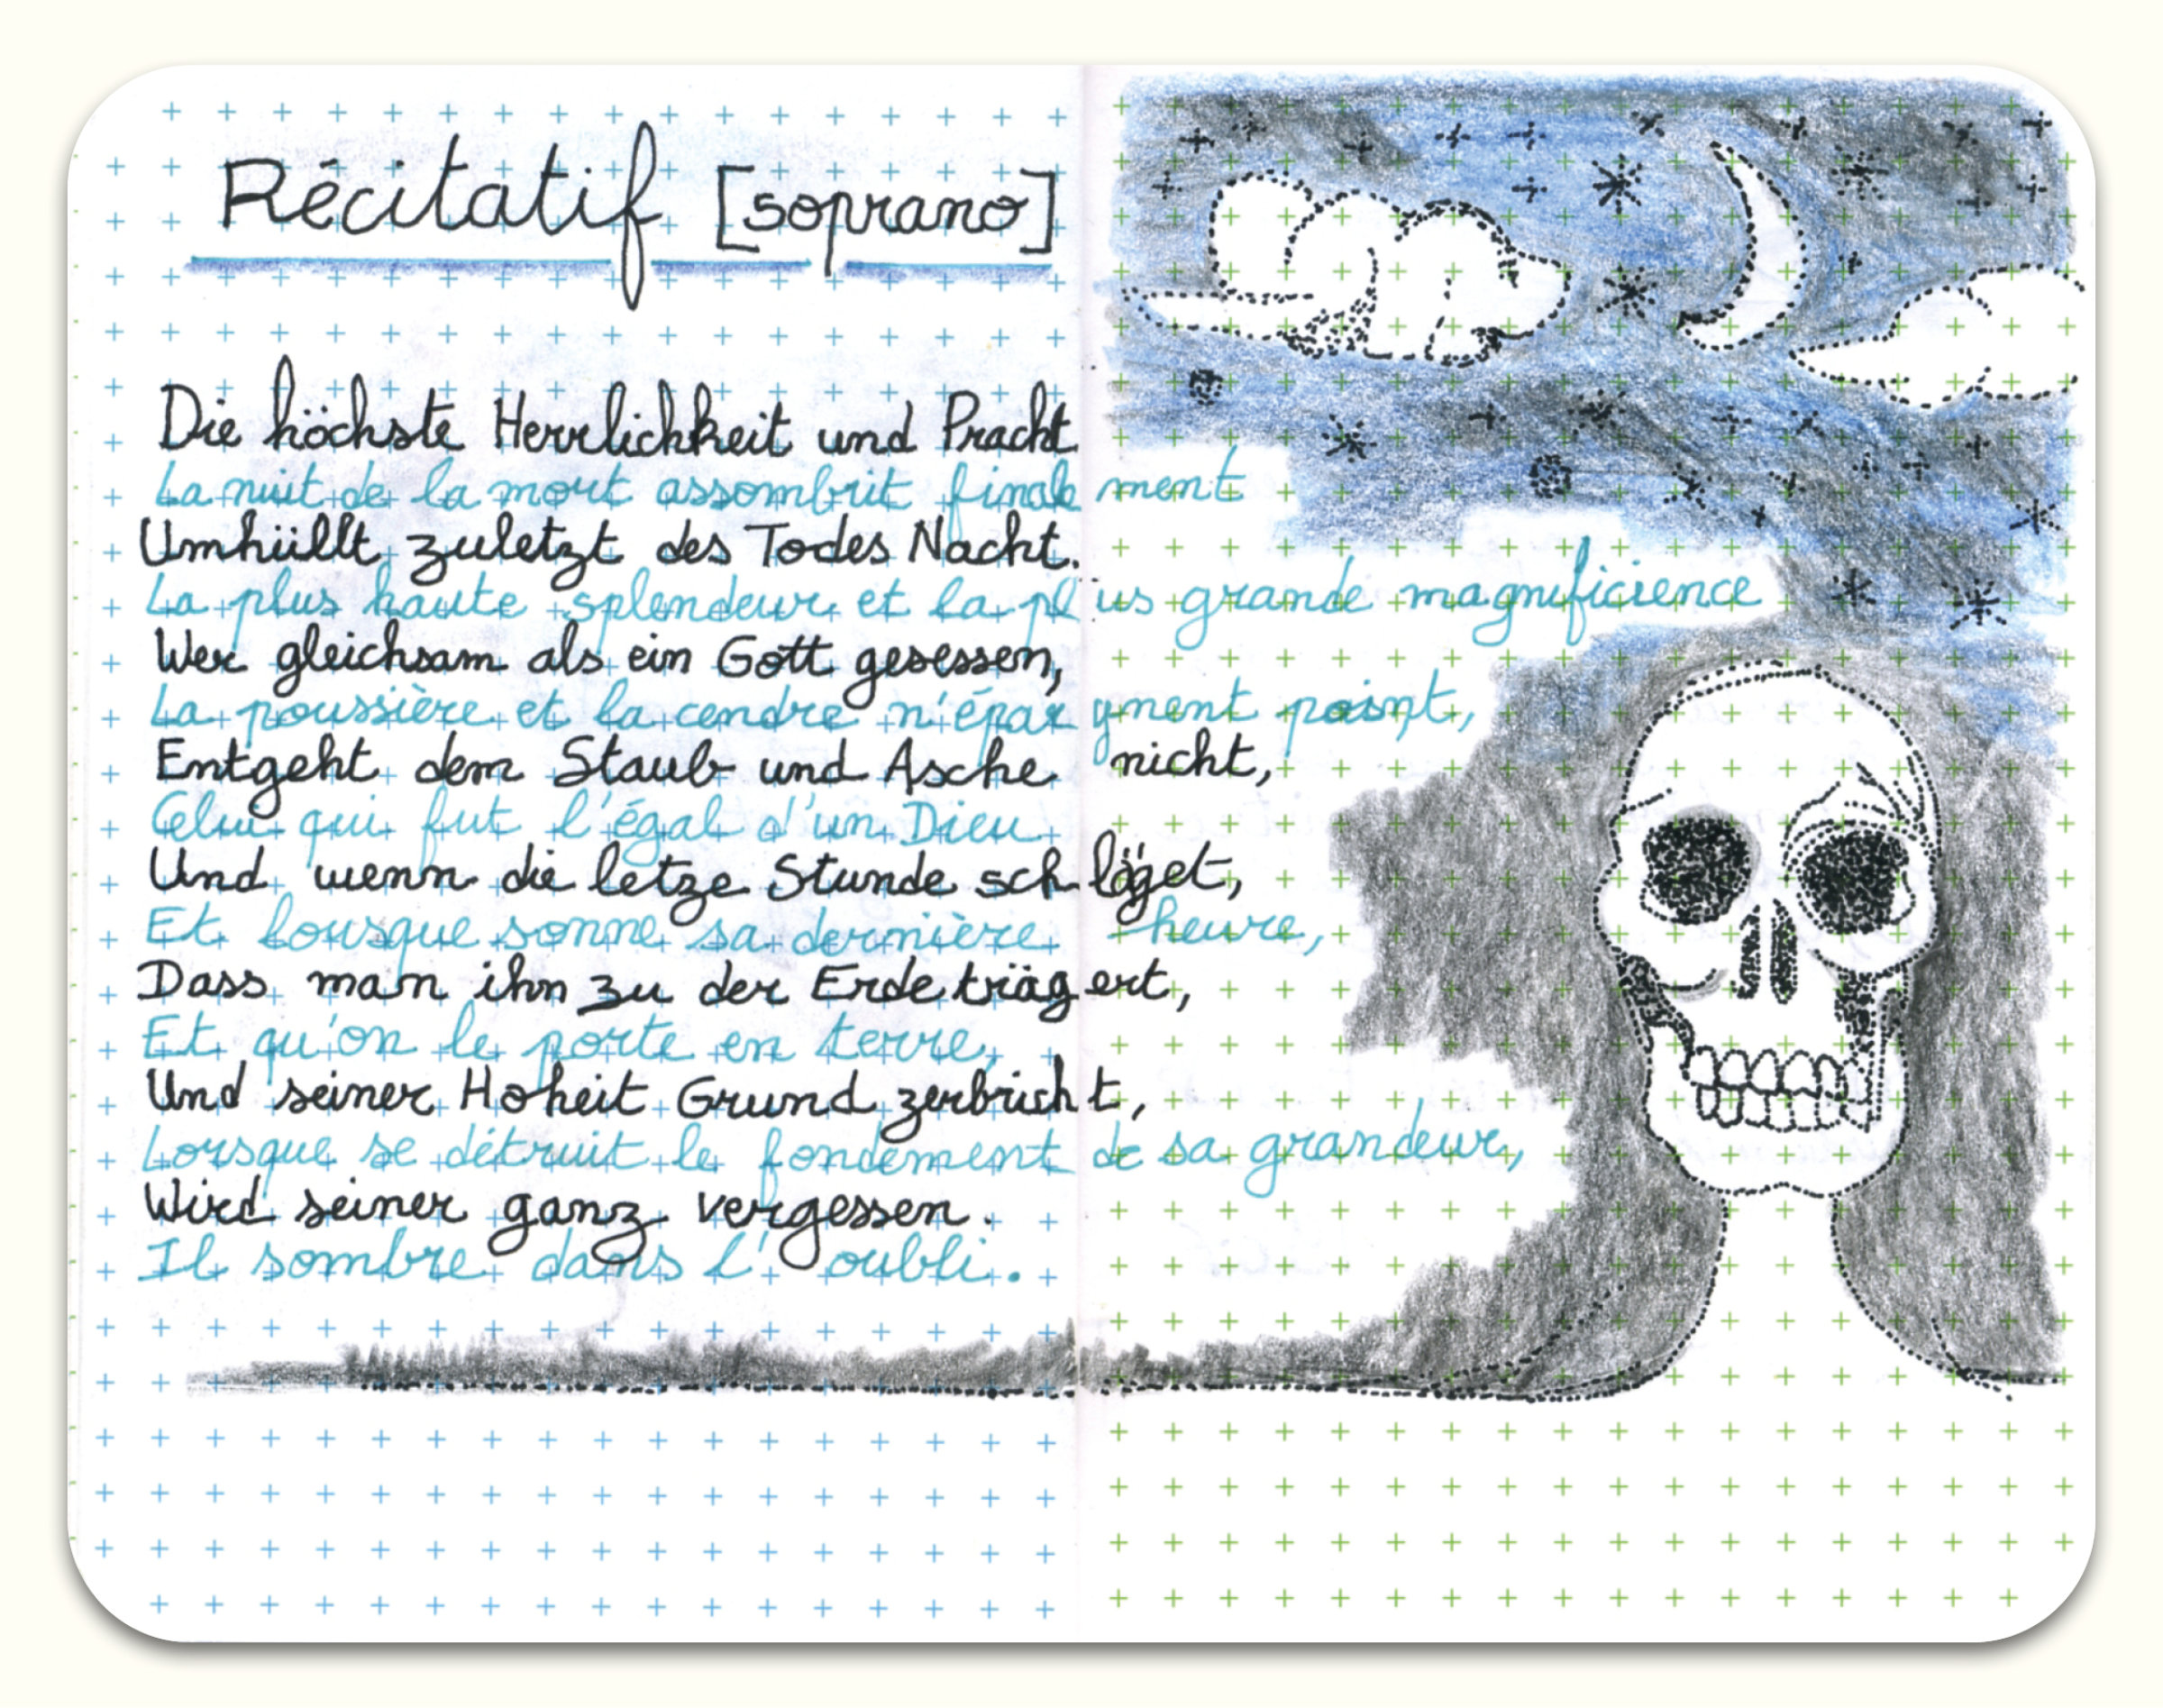 Récitatif [soprano]
Die höchste Herrlichkeit und Pracht
La nuit de la mort assombrit finalement
Umhüllt zuletzt des Todes Nacht.
La plus haute splendeur et la plus grande magnificience
Wer gleichsam als ein Gott gesessen,
La poussière et la cendre n'épargnent point,
Entgeht dem Staub und Asche nicht,
Celui qui fut l'égal d'un Dieu
Und wenn die letze Stunde schläget,
Et lorsque sonne sa dernière heure,
Dass man ihn zu der Erde trägert,
Et qu'on le porte en terre,
Und seiner Hoheit Grund zerbricht,
Lorsque se détruit le fondement de sa grandeur,
Wird seiner ganz vergessen.
Il sombre dans l'oubli.